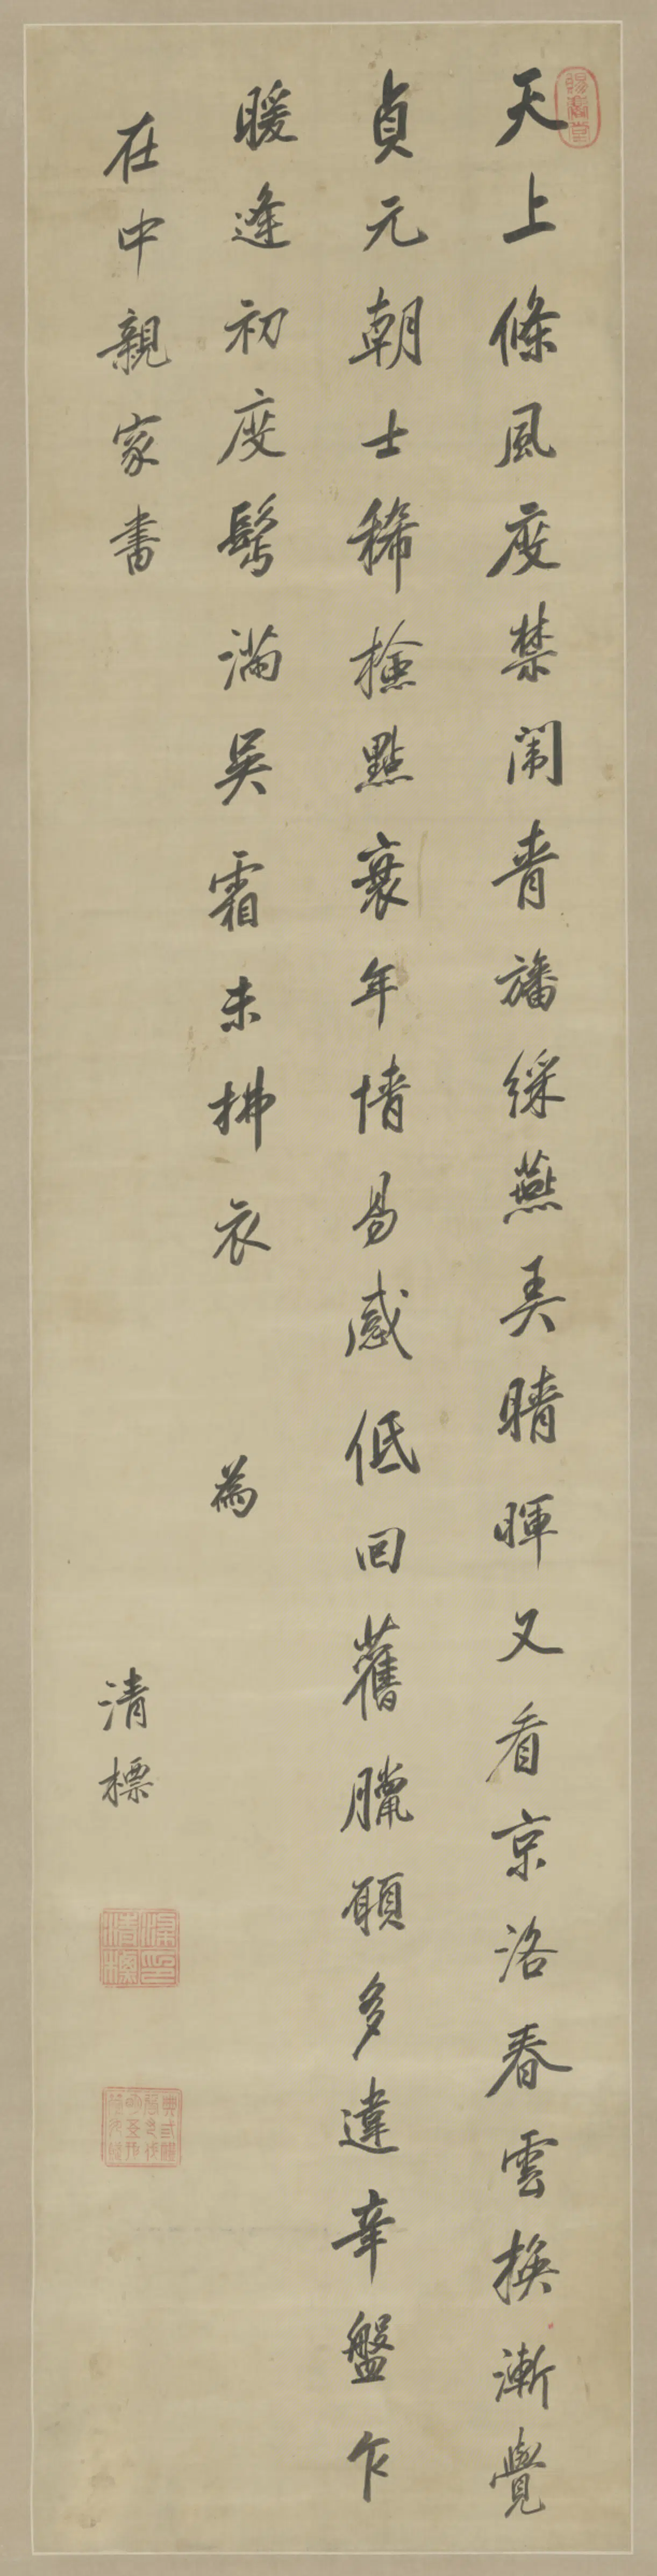 天上條風度禁闈青旛綵燕美晴暉又看京洛春雲換漸覺
貞元朝士稀檢點衰年情易感低回舊臘願多違辛盤乍
暖逢初度鬂滿吳霜未拂衣 為
在中親家書 清標
賜書堂
梁清標印